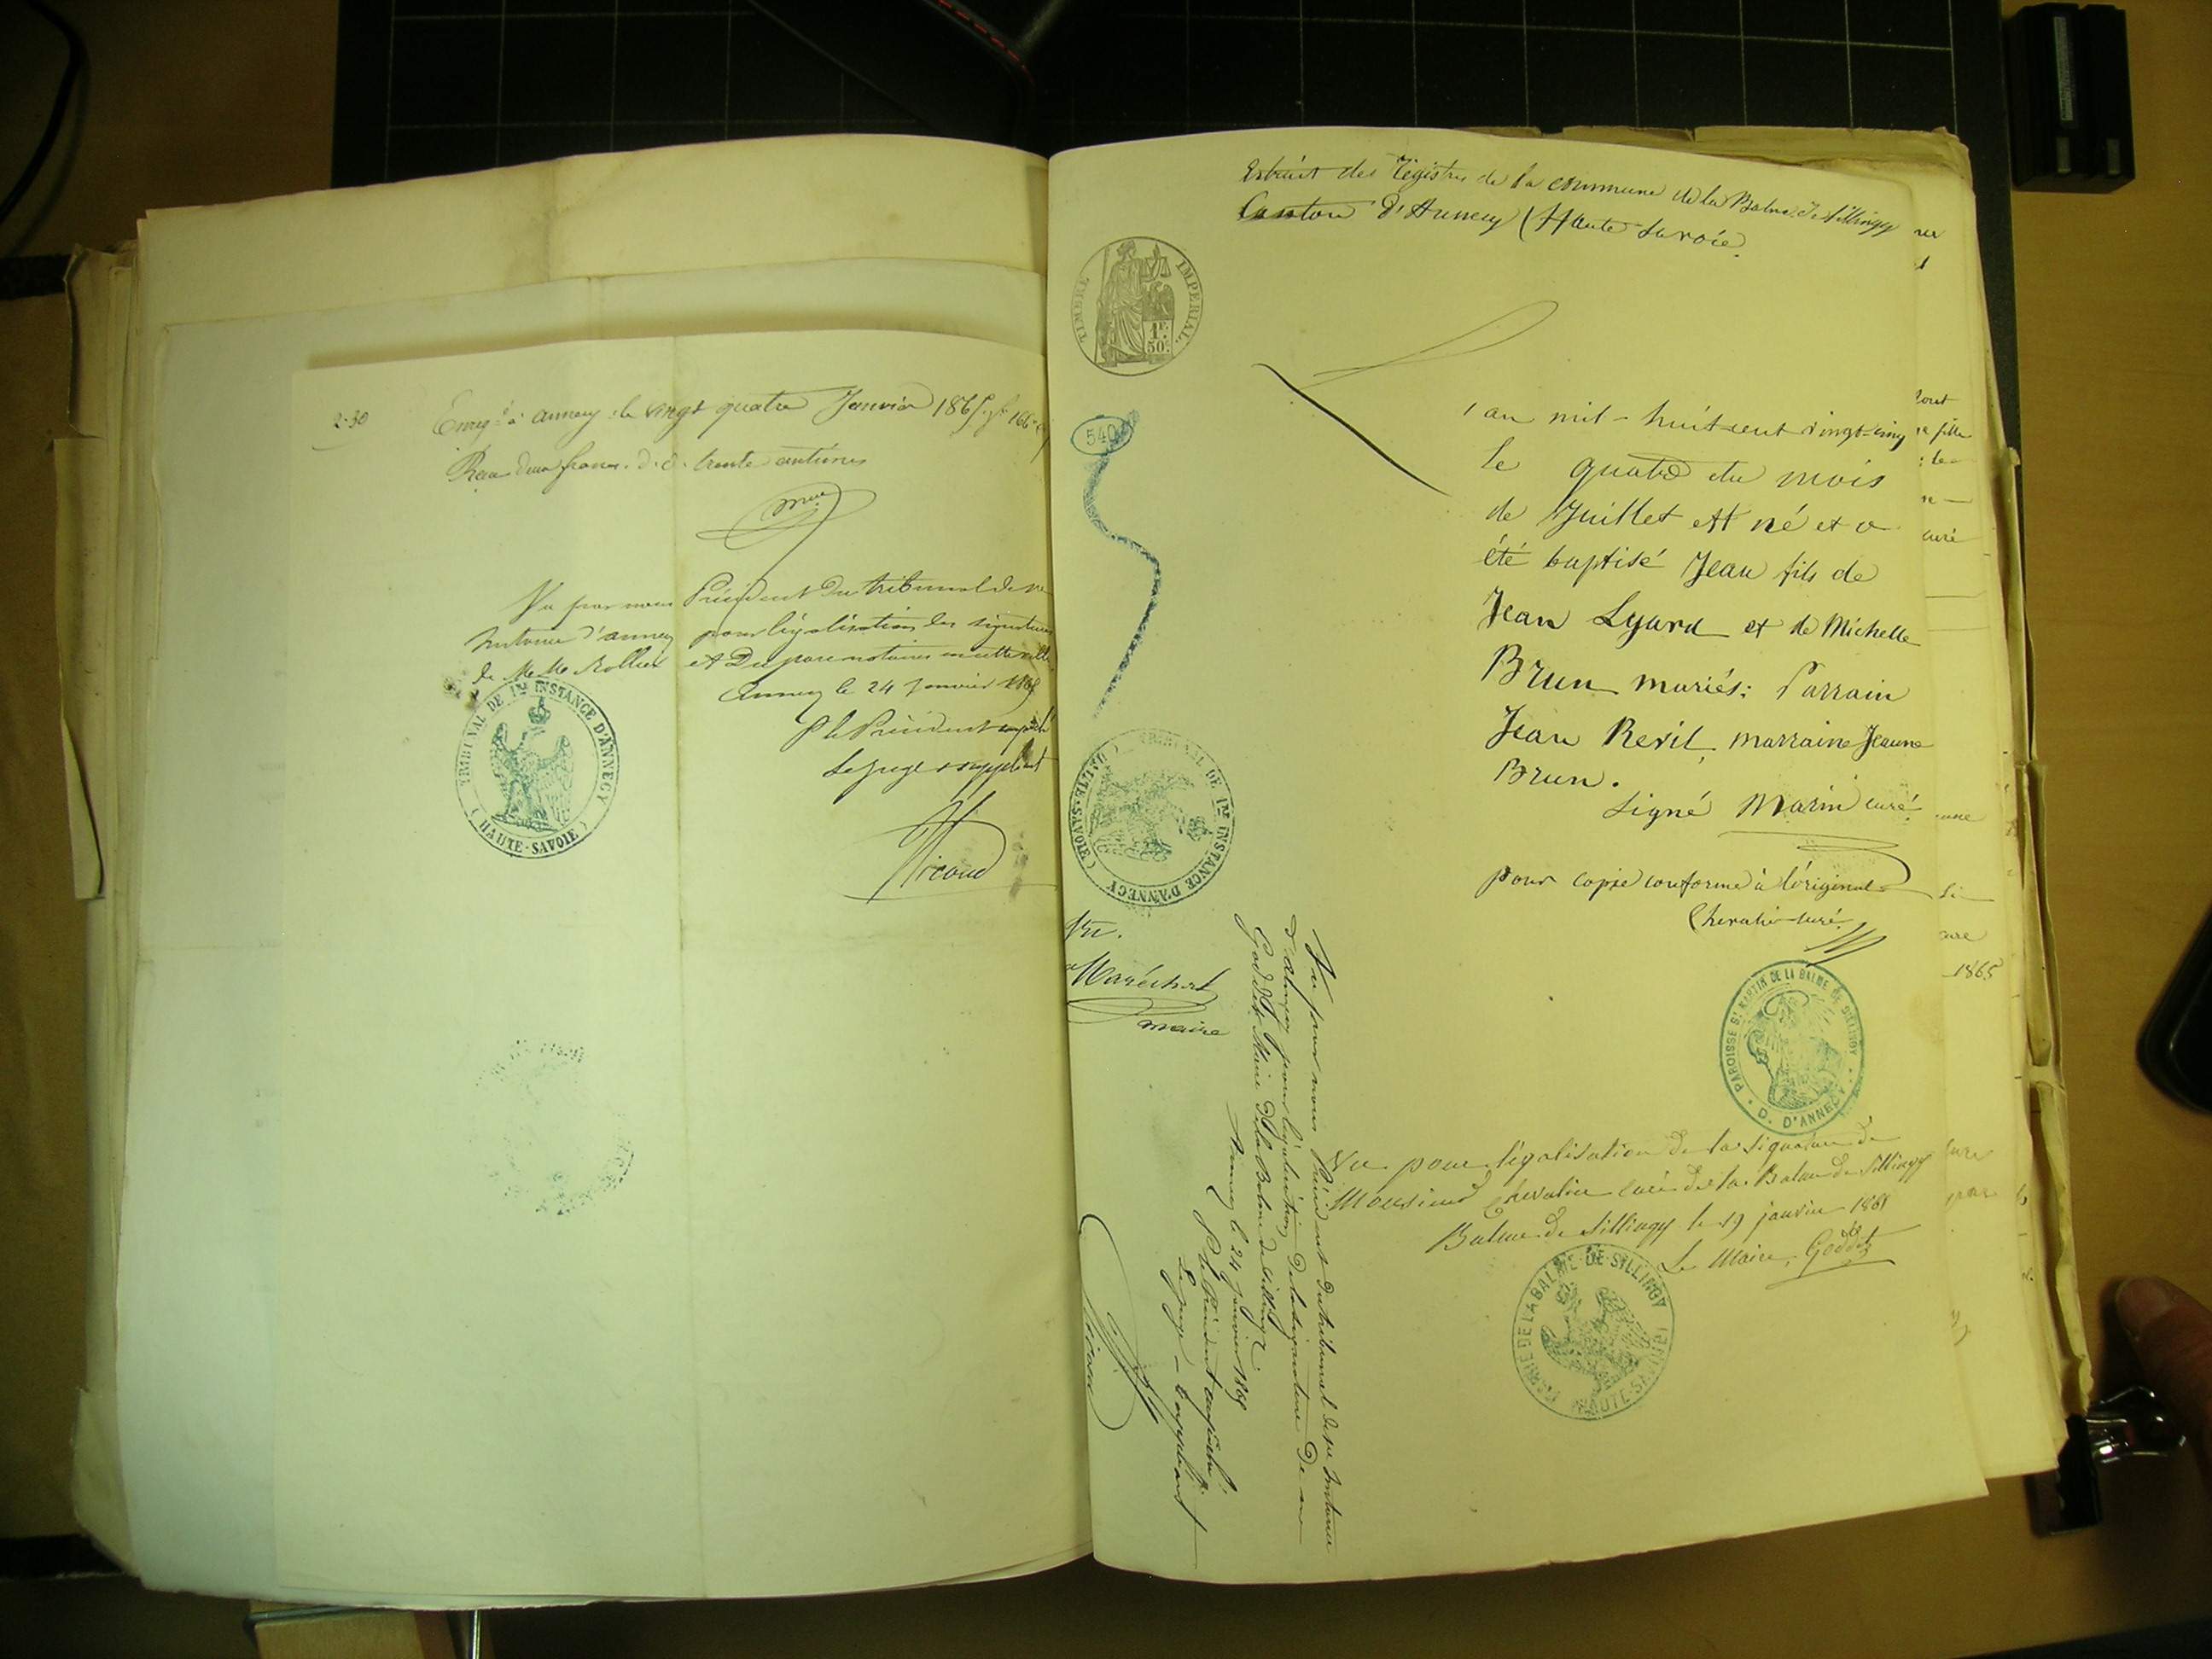 2.30
Enreg.é à annecy le vingt quatre Janvier 1865 fo 166
Reçu deux francs d. d. trente centimes
Vu par nous Président du tribunal de 1re
Instance d'annecy pour légalisation des signatures
de MMe Rollier et notaires en cette ville
Annecy le 24 janvier 1865
P le Président empêché
Le juge suppléant
TRIBUNAL DE 1RE INSTANCE D'ANNECY
(HAUTE-SAVOIE)
Extrait des Régistres de la commune de la Balme de Sillingy
Canton d'Annecy (Haute Savoie)
TIMBRE IMPERIAL
1F.
50C.
540
l'an mil-huit-cent vingt-cinq
le quatre du mois
de Juillet est né et a
été baptisé Jean fils de
Jean Lyard et de Michelle
Brun mariés: Parrain
Jean Revil, marraine Jeanne
Brun.
Signé Marin curé.
pour copie conforme à l'original
Chevalier curé
PAROISSE ST MARTIN DE LA BALME DE SILLINGY
D. D'ANNECY
Vu pour légalisation de la signature de
Monsieur Chevalier curé de la Balme de Sillingy
Balme de Sillingy le 19 janvier 1865
Le Maire, Goddet
MAIRIE DE LA BALME-DE-SILLINGY
HAUTE-SAVOIE
TRIBUNAL DE 1RE INSTANCE D'ANNECY
(HAUTE-SAVOIE)
Maréchal
maire
Vu par nous Président du tribunal de 1re Instance
d'annecy pour légalisation de la signature de
Goddet Maire de la Balme de Sillingy
Annecy le 24 janvier 1865
P le Président empêché
Le juge suppléant
1865